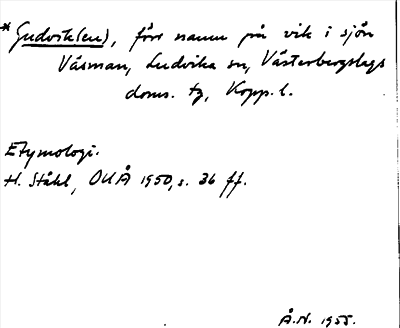 *Gudvik(en), förr namn på vik i sjön
Väsman, Ludvika sn, Västerbergslags
doms. tg, Kopp. l.
Etymologi.
H. Ståhl, OUÅ 1950, s. 36 ff.
Å.N. 1955.